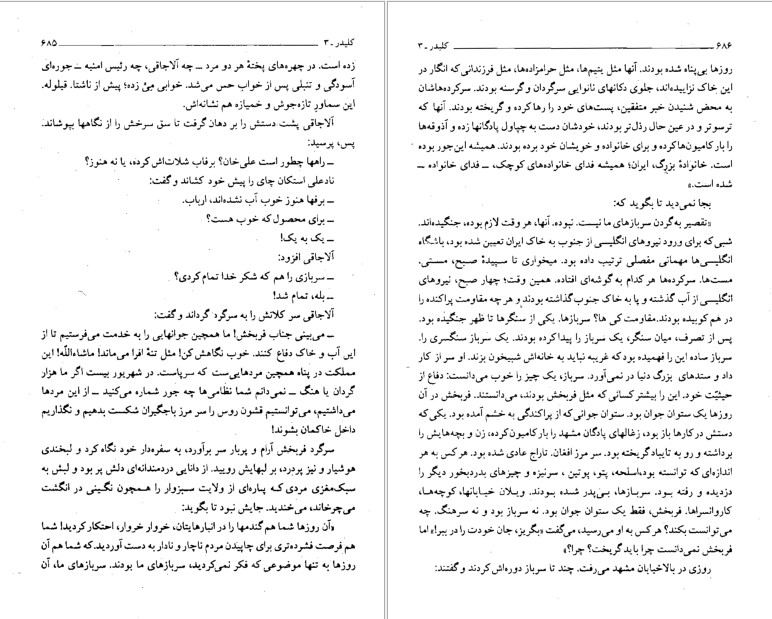 کلیدر ـ ۳ ۶۸۵
زده است. در چهره‌های پختهٔ هر دو مرد ــ چه آلاجاقی، چه رئیس امنیه ــ جوره‌ای
آسودگی و تنبلی پس از خواب حس می‌شد. خوابی مِئ زده؛ پیش از ناشتا. قیلوله.
این سماورِ تازه‌جوش و خمیازه هم نشانه‌اش.
آلاجاقی پشت دستش را بر دهان گرفت تا سق سرخش را از نگاهها بپوشاند.
پس، پرسید:
ــ راهها چطور است علی‌خان؟ برفاب شلات‌اش کرده، یا نه هنوز؟
نادعلی استکان چای را پیش خود کشاند و گفت:
ــ برفها هنوز خوب آب نشده‌اند، ارباب.
ــ برای محصول که خوب هست؟
ــ یک به یک!
آلاجاقی افزود:
ــ سربازی را هم که شکر خدا تمام کردی؟
ــ بله، تمام شد!
آلاجاقی سر کلانش را به سرگرد گرداند و گفت:
ــ می‌بینی جناب فربخش! ما همچین جوانهایی را به خدمت می‌فرستیم تا از
این آب و خاک دفاع کنند. خوب نگاهش کن! مثل تنهٔ افرا می‌ماند! ماشاءاللّه! این
مملکت در پناه همچین مردهایی‌ست که سرپاست. در شهریور بیست اگر ما هزار
گردان یا هنگ ــ نمی‌دانم شما نظامی‌ها چه جور شماره می‌کنید ــ از این مردها
می‌داشتیم، می‌توانستیم قشون روس را سر مرز باجگیران شکست بدهیم و نگذاریم
داخل خاکمان بشوند!
سرگرد فربخش آرام و پربار سر برآورد، به سفره‌دار خود نگاه کرد و لبخندی
هوشیار و نیز پردرد، بر لبهایش رویید. از دانایی دردمندانه‌ای دلش پر بود و لبش به
سبک‌مغزی مردی که پاره‌ای از ولایت سبزوار را همچون نگینی در انگشت
می‌چرخاند، می‌خندید. جایش نبود تا بگوید:
«آن روزها شما هم گندمها را در انبارهایتان، خروار خروار، احتکار کردید! شما
هم فرصت فشرده‌تری برای چاپیدن مردم ناچار و نادار به دست آوردید. که شما هم آن
روزها به تنها موضوعی که فکر نمی‌کردید، سربازهای ما بودند. سربازهای ما، آن
۶۸۶ کلیدر ـ ۳
روزها بی‌پناه شده بودند. آنها مثل یتیم‌ها، مثل حرامزاده‌ها، مثل فرزندانی که انگار در
این خاک نزاییده‌اند، جلوی دکانهای نانوایی سرگردان و گرسنه بودند. سرکرده‌هاشان
به محض شنیدن خبر متفقین، پست‌های خود را رها کرده و گریخته بودند. آنها که
ترسوتر و در عین حال رذل‌تر بودند، خودشان دست به چپاول پادگانها زده و آذوقه‌ها
را بار کامیون‌ها کرده و برای خانواده و خویشان خود برده بودند. همیشه این‌جور بوده
است. خانوادهٔ بزرگ، ایران؛ همیشه فدای خانواده‌های کوچک، ــ فدای خانواده ــ
شده است.»
بجا نمی‌دید تا بگوید که:
«تقصیر به گردن سربازهای ما نیست. نبوده. آنها، هر وقت لازم بوده، جنگیده‌اند.
شبی که برای ورود نیروهای انگلیسی از جنوب به خاک ایران تعیین شده بود، باشگاه
انگلیسی‌ها مهمانی مفصلی ترتیب داده بود. میخواری تا سپیدهٔ صبح، مستی.
مست‌ها. سرکرده‌ها هر کدام به گوشه‌ای افتاده. همین وقت؛ چهار صبح، نیروهای
انگلیسی از آب گذشته و پا به خاک جنوب گذاشته بودند و هر چه مقاومت پراکنده را
در هم کوبیده بودند. مقاومت کی ها؟ سربازها. یکی از سنگرها تا ظهر جنگیده بود.
پس از تصرف، میان سنگر، یک سرباز را پیدا کرده بودند. یک سرباز سنگسری را.
سرباز ساده این را فهمیده بود که غریبه نباید به خانه‌اش شبیخون بزند. او سر از کار
داد و ستدهای بزرگ دنیا در نمی‌آورد. سرباز، یک چیز را خوب می‌دانست: دفاع از
حیثیّت خود. این را بیشتر کسانی که مثل فربخش بودند، می‌دانستند. فربخش در آن
روزها یک ستوان جوان بود. ستوان جوانی که از پراکندگی به خشم آمده بود. یکی که
دستش در کارها باز بود، زغالهای پادگان مشهد را بار کامیون کرده، زن و بچه‌هایش را
برداشته و رو به تایباد گریخته بود. سر مرز افغان. تاراج عادی شده بود. هر کس به هر
اندازه‌ای که توانسته بود، اسلحه، پتو، پوتین ، سرنیزه و چیزهای بدردبخور دیگر را
دزدیده و رفته بود. سربازها، بی‌پدر شده بودند. ویلان خیابانها، کوچه‌ها،
کاروانسراها. فربخش، فقط یک ستوان جوان بود. نه سرباز بود و نه سرهنگ. چه
می‌توانست بکند؟ هر کس به او می‌رسید، می‌گفت «بگریز، جان خودت را در ببر!» اما
فربخش نمی‌دانست چرا باید گریخت؟ چرا؟»
روزی در بالاخیابان مشهد می‌رفت. چند تا سرباز دوره‌اش کردند و گفتند: